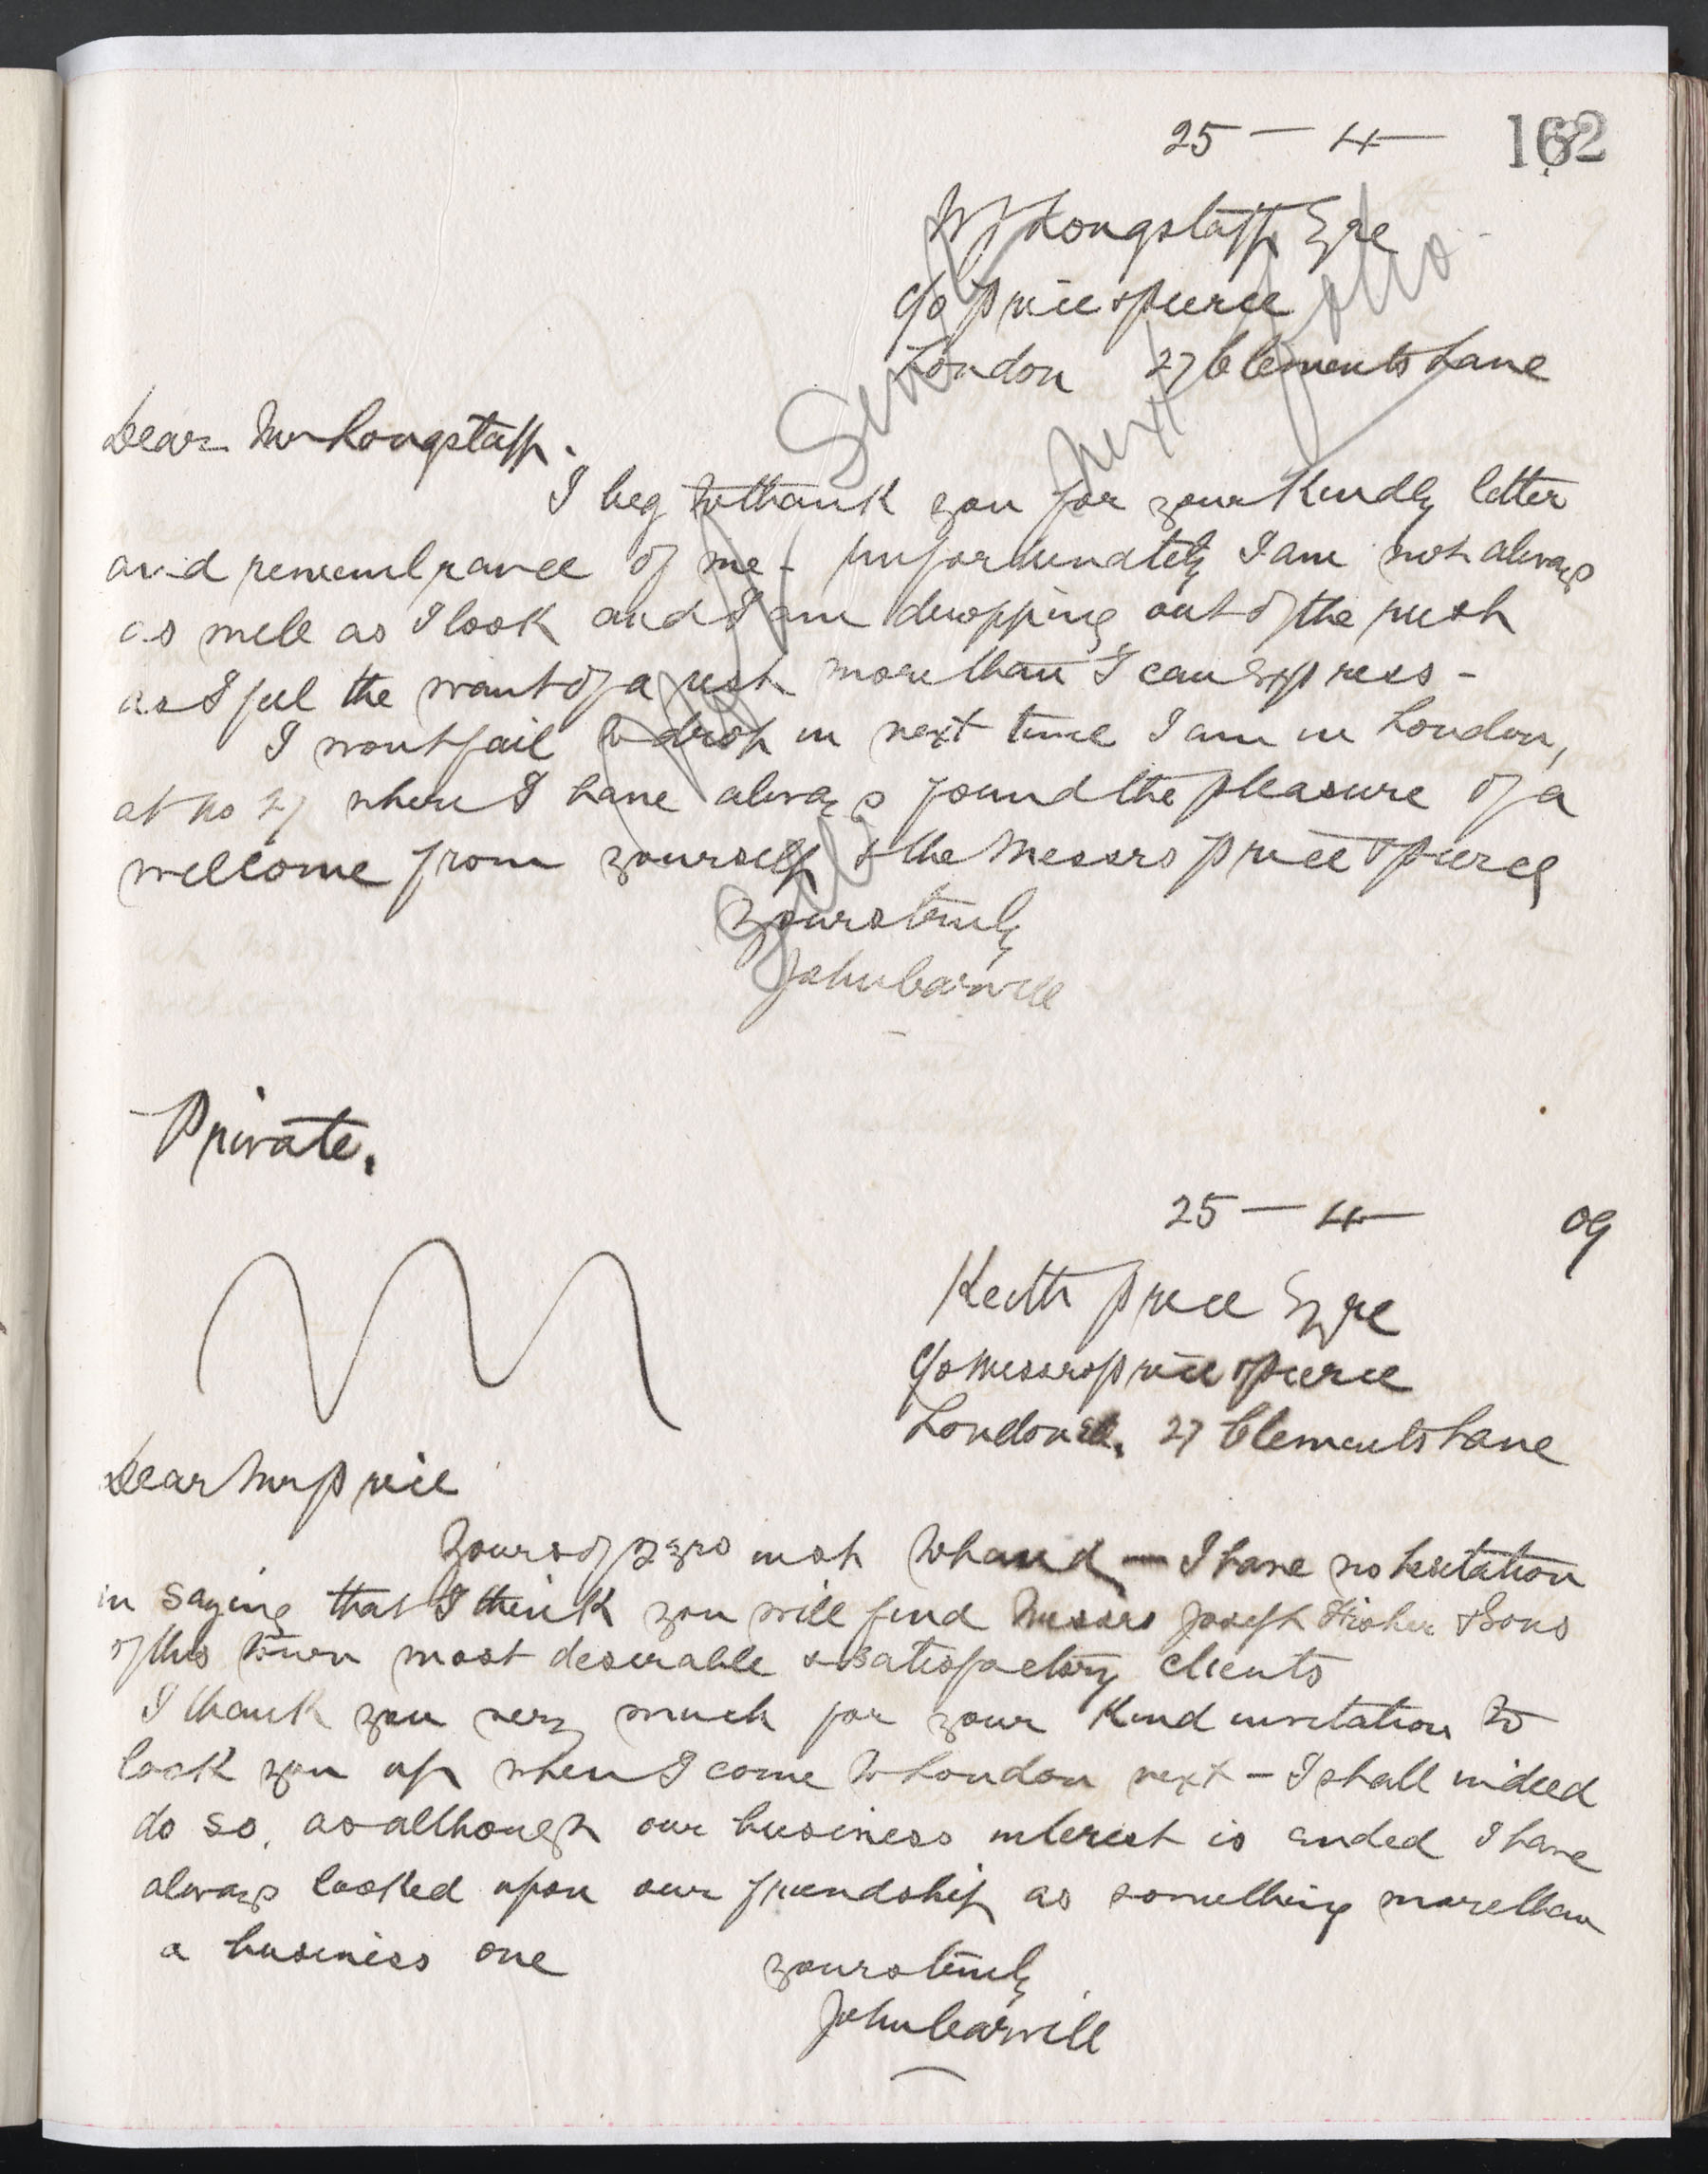 25 — 4 — 162
W J Longstaff Esqre
c/o Price & Pierce
London 27 Clements Lane
Dear Mr Longstaff.
I beg to thank you for your Kindly letter
and remembrance of me - unfortunately I am not always
as well as I look and I am dropping out of the rush
as I feel the want of a rest more than I can Express -
I wont fail to drop in next time I am in London,
at No 27 where I have always found the pleasure of a
wellcome from yourself & the Messrs Price & Pierce
Yours truly
John Carvill
Private.
25 — 4 — 09
Keith Price Esqre
c/o Messrs Price & Pierce
London 27 Clements Lane
Dear Mr Price
Yours of 23rd inst to hand — I have no hesitation
in saying that I think you will find Messrs Joseph Fisher & Sons
of this town most desirable & satisfactory clients
I thank you very much for your Kind invitation to
look you up when I come to London next - I shall indeed
do so, as although our business interest is ended I have
always looked upon our friendship as something more than
a business one
yours truly
John Carvill